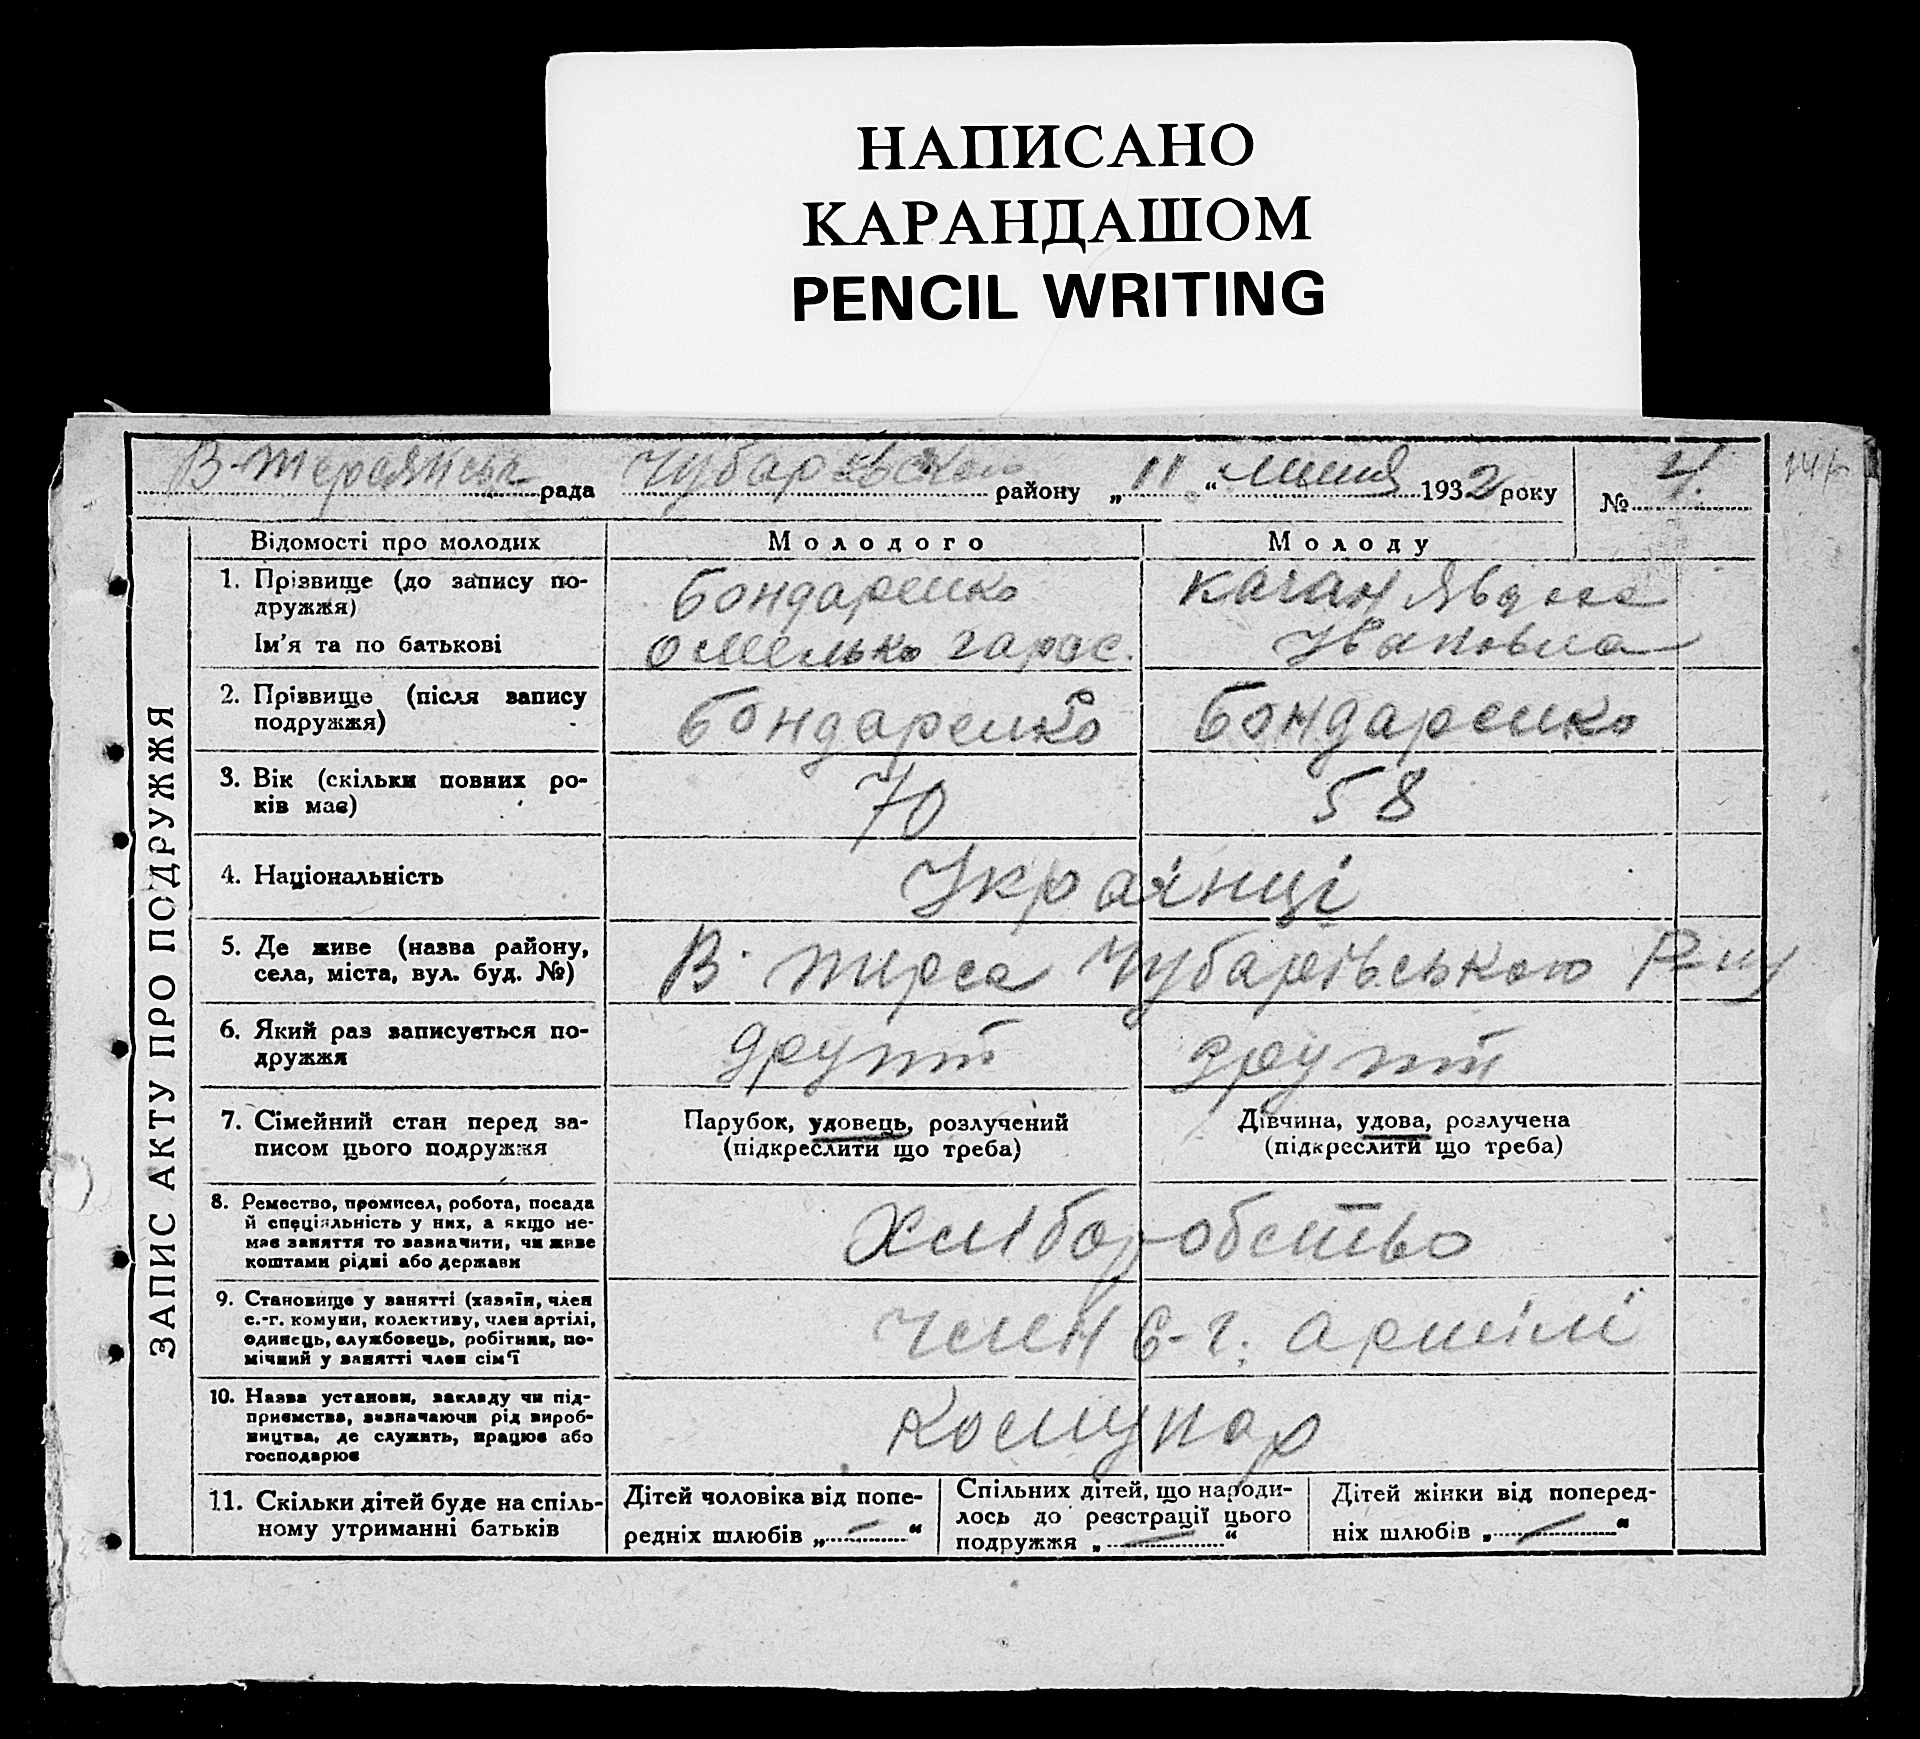 НАПИСАНО
КАРАНДАШОМ
PENCIL WRITING
В-Терсянськ рада Чубарівського району „11“ липня 1932 року № 4.
ЗАПИС АКТУ ПРО ПОДРУЖЖЯ
Відомості про молодих Молодого Молоду
1. Прізвище (до запису по-
дружжя)
Бондаренко
Качан Явдоха
Ім'я та по батькові
Омелько Тарас.
Івановна
2. Прізвище (після запису
подружжя)
Бондаренко Бондаренко
3. Вік (скільки повних ро-
ків має)
70 58
4. Національність
Українці
5. Де живе (назва району,
села, міста, вул. буд. №)
В. Терса Чубарівського Р-ну
6. Який раз записується по-
дружжя
другий другий
7. Сімейний стан перед за-
писом цього подружжя
Парубок, удовець, розлучений
(підкреслити що треба)
Дівчина, удова, розлучена
(підкреслити що треба)
8. Ремество, промисел, робота, посада
й спеціяльність у них, а якщо не-
має заняття то зазначити, чи живе
коштами рідні або держави
Хліборобство
9. Становище у занятті (хазяїн, член
с.-г. комуни, колективу, член артілі,
одинець, службовець, робітник, по-
мічний у занятті член сім'ї
член с-г. артілі
10. Назва установи, закладу чи під-
приємства, визначаючи рід вироб-
ництва, де служить, працює або
господарює
Комунар
11. Скільки дітей буде на спіль-
ному утриманні батьків
Дітей чоловіка від попе-
редніх шлюбів „—“
Спільних дітей, що народи-
лось до реєстрації цього
подружжя „—“
Дітей жінки від поперед-
ніх шлюбів „—“